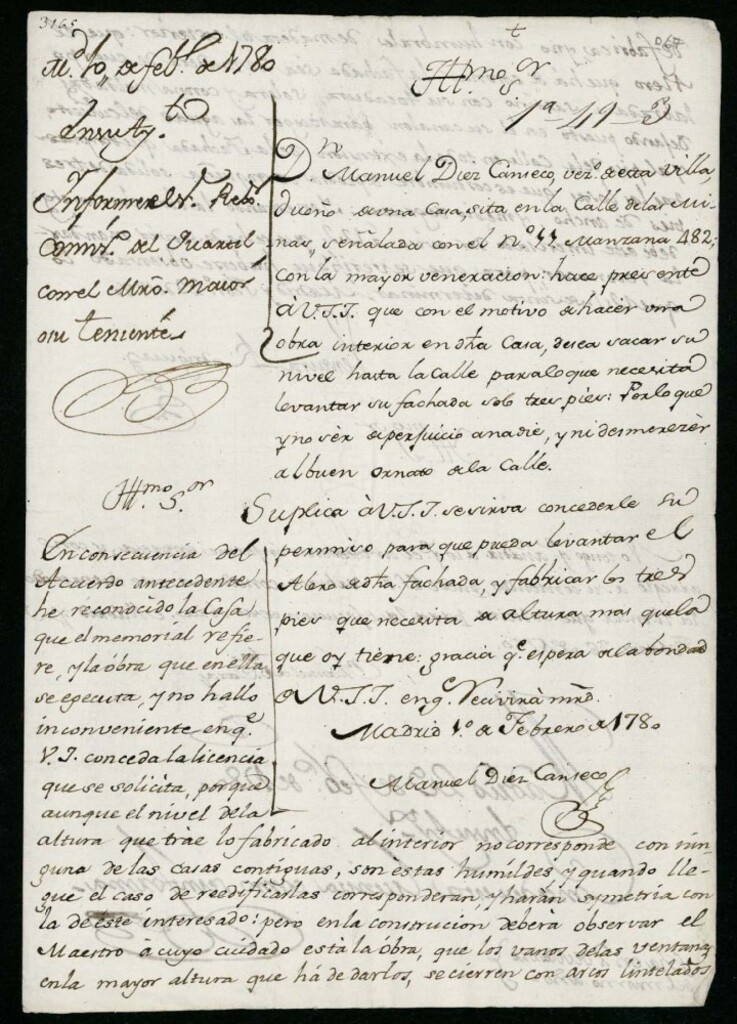 3165
M.d 10 de feb.o de 1780
En su Ay.to
Informe el S.r Rex.or
Comis.o del Quartel
con el Mro. Maior
o su teniente
Yll.mo S.or
1a 49
D.n Manuel Diez Canseco, vez.o de esta Villa,
dueño de una Casa, sita en la Calle de las Mi-
nas, señalada con el N.o 11 Manzana 482;
con la mayor veneracion: hace presente
à V.S.I. que con el motivo de hacer una
obra interior en dha Casa, desea sacar su
nivel hasta la Calle para lo que necesita
levantar su fachada solo tres pies: Por lo que
y no sèr de perjuicio a nadie, y ni desmerezèr
al buen ornato de la Calle.
Suplica à V.S.I. se sirva concederle su
permiso para que pueda levantar el
Alero de dha fachada, y fabricar los tres
pies que necesita de altura mas que la
que oy tiene: gracia q.e espera de la bondad
de V.S.I. en q.e recivirà mrd.
Madrid 1.o de Febrero de 1780
Manuel Diez Canseco
Yll.mo S.or
En consecuencia del
Acuerdo antecedente
he reconocido la Casa
que el memorial refie-
re, y la óbra que en ella
se egecuta, y no hallo
inconveniente en q.e
V.I. conceda la licencia
que se solicita, porque
aunque el nivel de la
altura que trae lo fabricado al interior no corresponde con nin-
guna de las casas contiguas, son èstas humildes y quando lle-
gue el caso de reedificarlas corresponderan, y haràn symetria con
la de èste interesado: pero en la construcion deberà observar el
Maestro à cuyo cuidado està la óbra, que los vanos de las ventanas
en la mayor altura que hà de darlos, se cierren con arcos lintelados